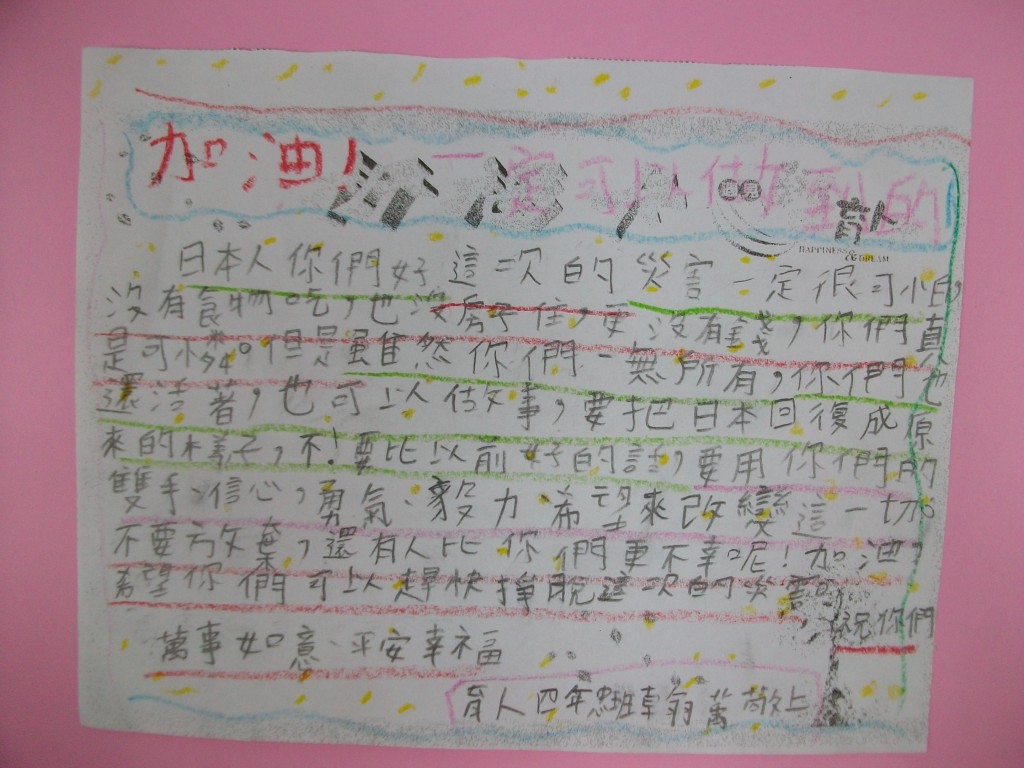 加油! 一定可以做到的
遇見
育人
HAPPINESS DREAM
日本人你們好這一次的災害一定很可怕,
沒有食物吃,也沒房子住,更沒有錢,你們真
是可憐。但是雖然你們一無所有,你們也
還活著,也可以做事,要把日本回復成原
來的樣子,不!要比以前好的話,要用你們的
雙手、信心,勇氣、毅力、希望來改變這一切。
不要放棄,還有人比你們更不幸呢!加油,
希望你們可以趕快掙脫這次的災害,祝你們
萬事如意、平安幸福
育人四年忠班 敬上